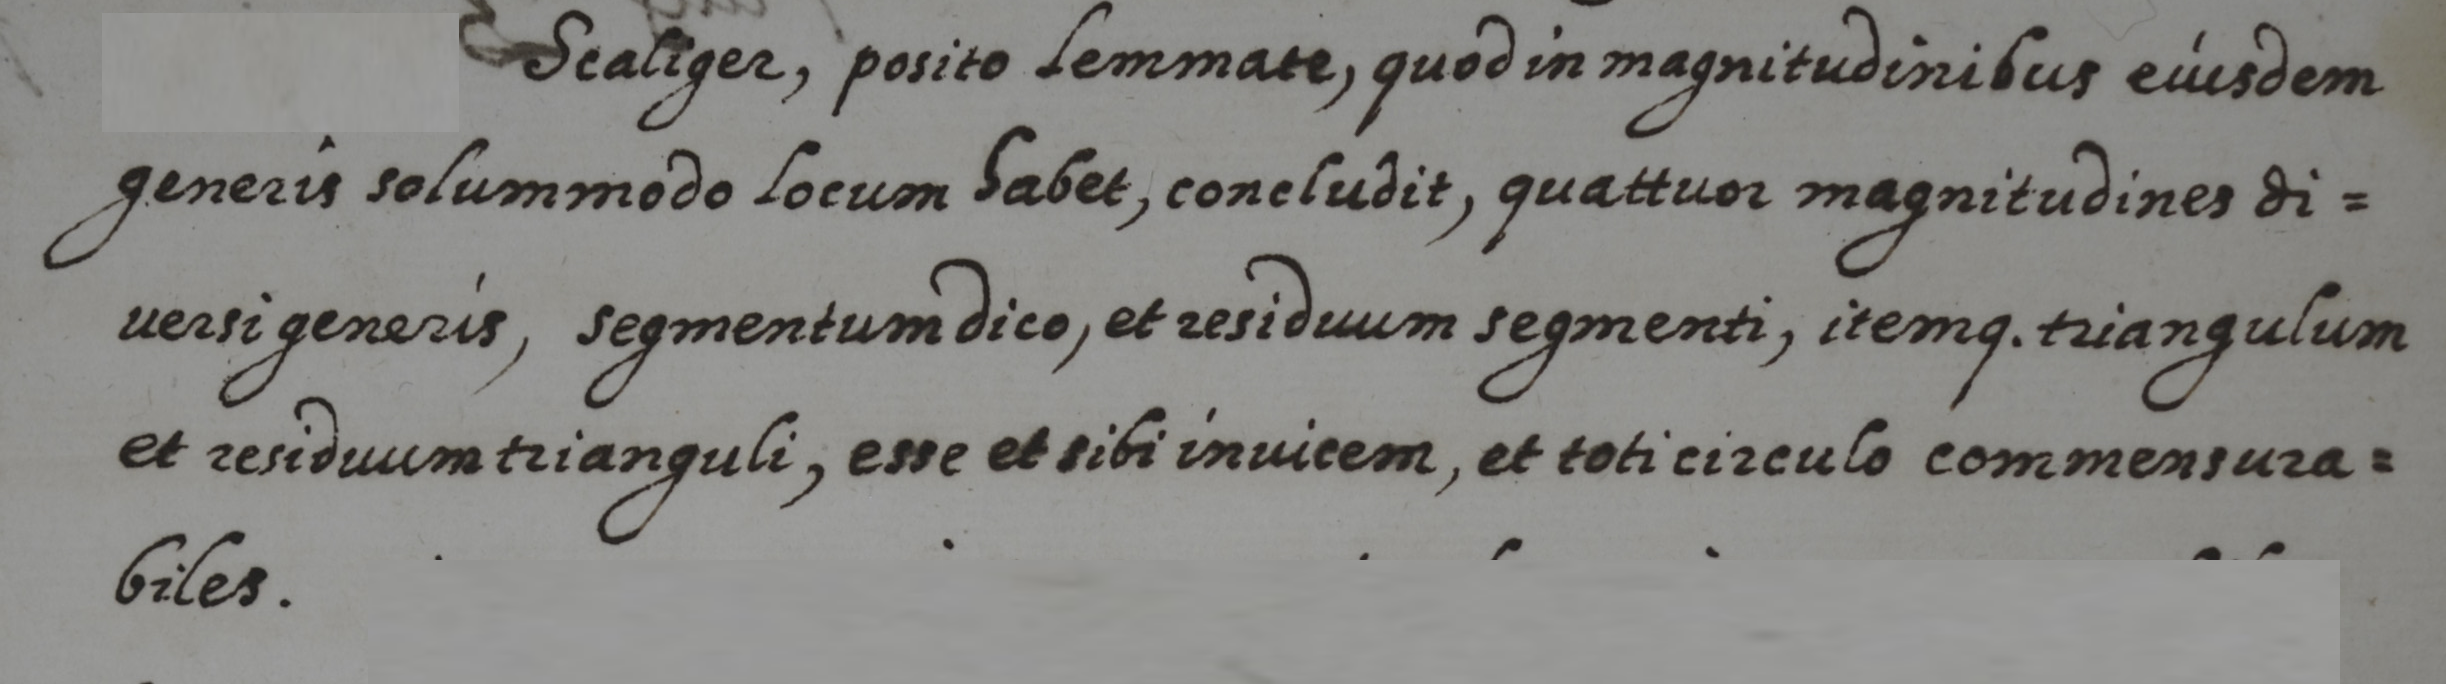 Scaliger, posito Lemmate, quòd in magnitudinibus eiusdem
generis solummodo locum habet, concludit, quattuor magnitudines di=
uersi generis, segmentum dico, et residuum segmenti, itemq. triangulum
et residuum trianguli, esse et sibi inuicem, et toti circulo commensura=
biles.